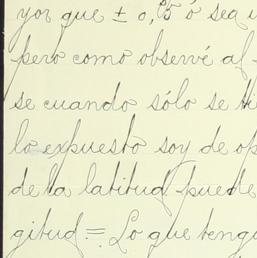 yor que ± 0,
pero como observé al
se cuando sólo se
lo expuesto soy de op
de la latitud puede
gitud.= Lo que tengu